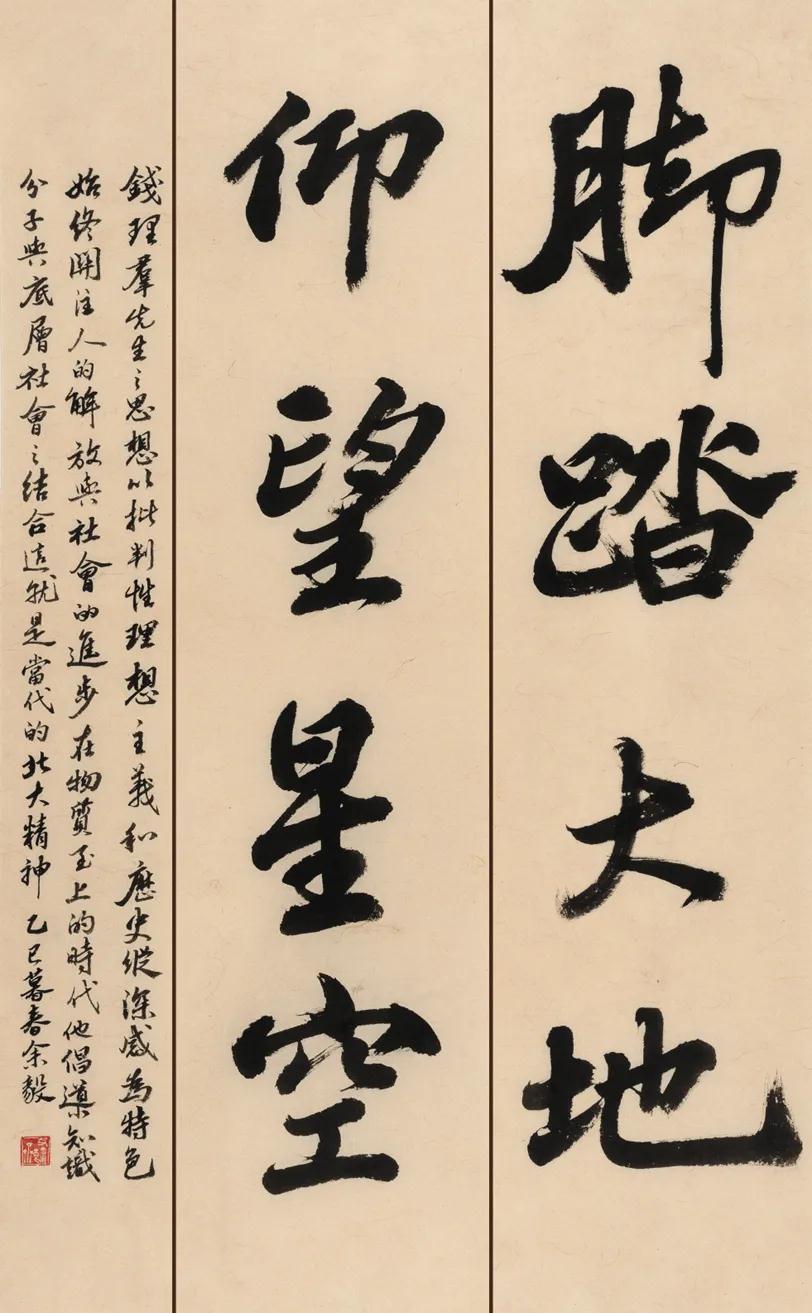 脚踏大地
仰望星空
錢理羣先生之思想以批判性理想主義和歷史縱深感為特色
始終關注人的解放與社會的進步在物質至上的時代他倡導知識
分子與底層社會之結合這就是當代的北大精神 乙巳暮春余毅